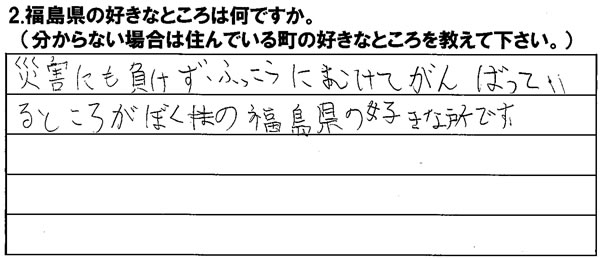 2.福島県の好きなところは何ですか。
（分からない場合は住んでいる町の好きなところを教えて下さい。）
災害にも負けず、ふっこうにむけてがんばってい
るところがぼく株の福島県の好きな所です